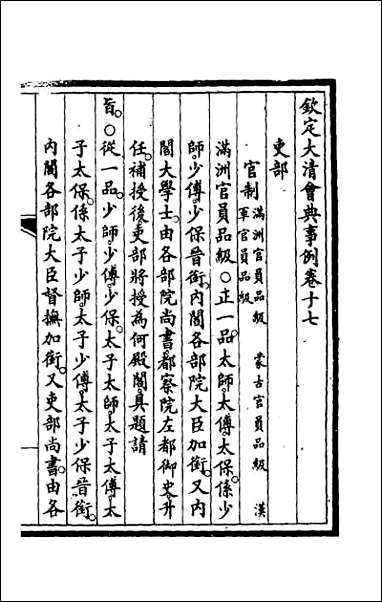 欽定大清會典事例卷十七
吏部
官制 滿洲官員品級 蒙古官員品級 漢
軍官員品級
滿洲官員品級○正一品太師太傅太保係少
師少傅少保晉銜內閣各部院大臣加銜又內
閣大學士由各部院尚書都察院左都御史升
任補授後吏部將授為何殿閣具題請
旨○從一品少師少傅少保太子太師太子太傅太
子太保係太子少師太子少傅太子少保晉銜
內閣各部院大臣督撫加銜又吏部尚書由各